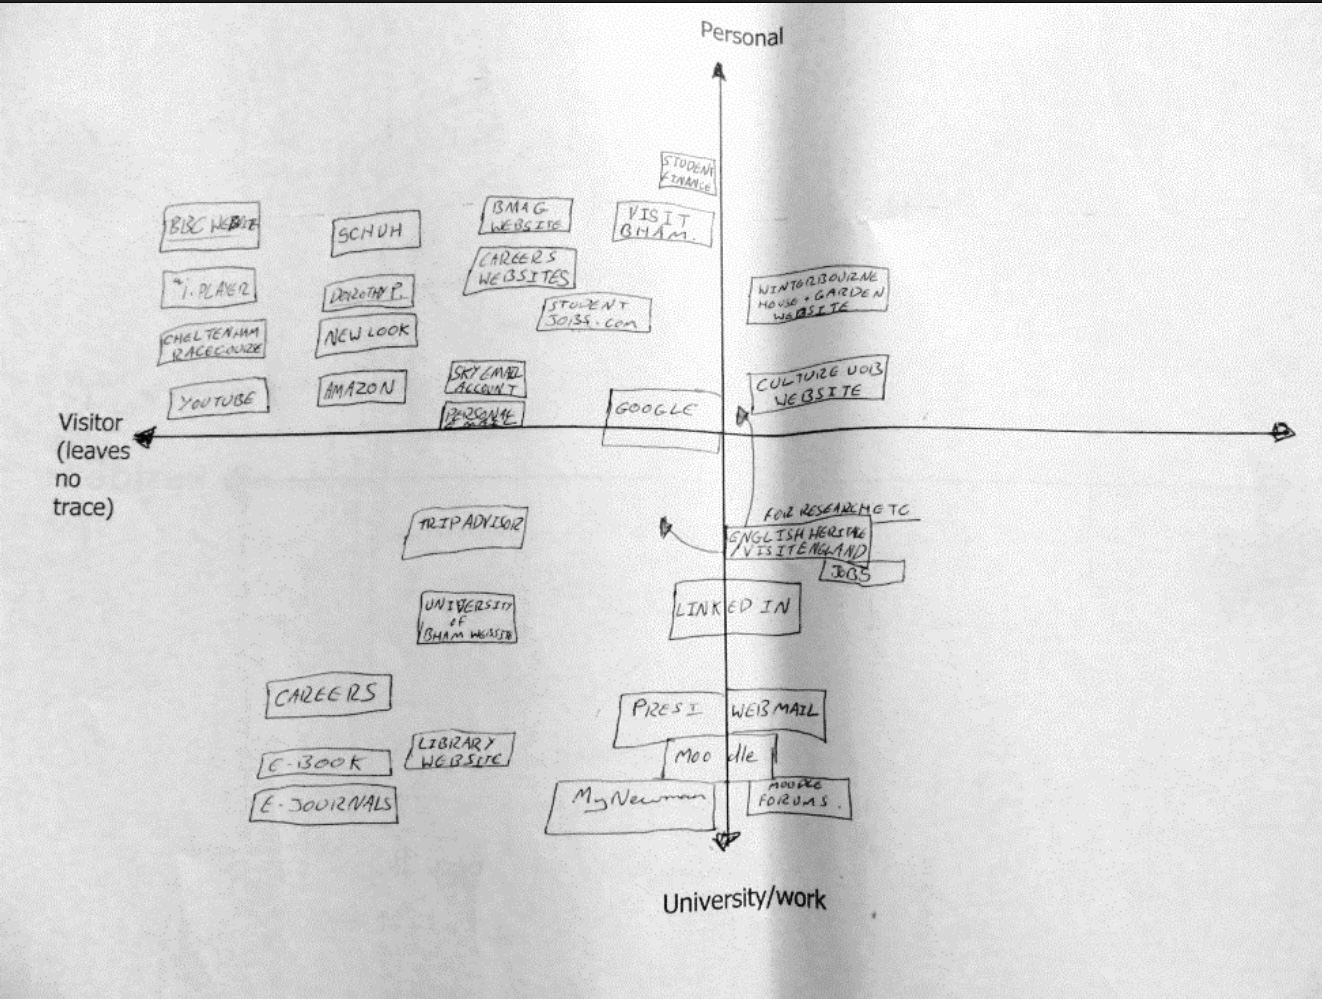 Personal
STUDENT
FINANCE
BBC WEBSITE
SCHUH
BMAG
WEBSITE
VISIT
BHAM.
CAREERS
WEBSITES
i.PLAYER
DOROTHY P.
STUDENT
JOBS.com
WINTERBOURNE
HOUSE + GARDEN
WEBSITE
CHELTENHAM
RACECOURSE
NEW LOOK
YOUTUBE
AMAZON
SKY EMAIL
ACCOUNT
PERSONAL
EMAIL
GOOGLE
CULTURE UOB
WEBSITE
Visitor
(leaves
no
trace)
TRIPADVISOR
FOR RESEARCH ETC
ENGLISH HERITAGE
/VISITENGLAND
JOBS
UNIVERSITY
of
BHAM WEBSITE
LINKED IN
CAREERS
PRESI
WEBMAIL
LIBRARY
WEBSITE
Moodle
E-BOOK
E-JOURNALS
MyNewman
MOODLE
FORUMS.
University/work